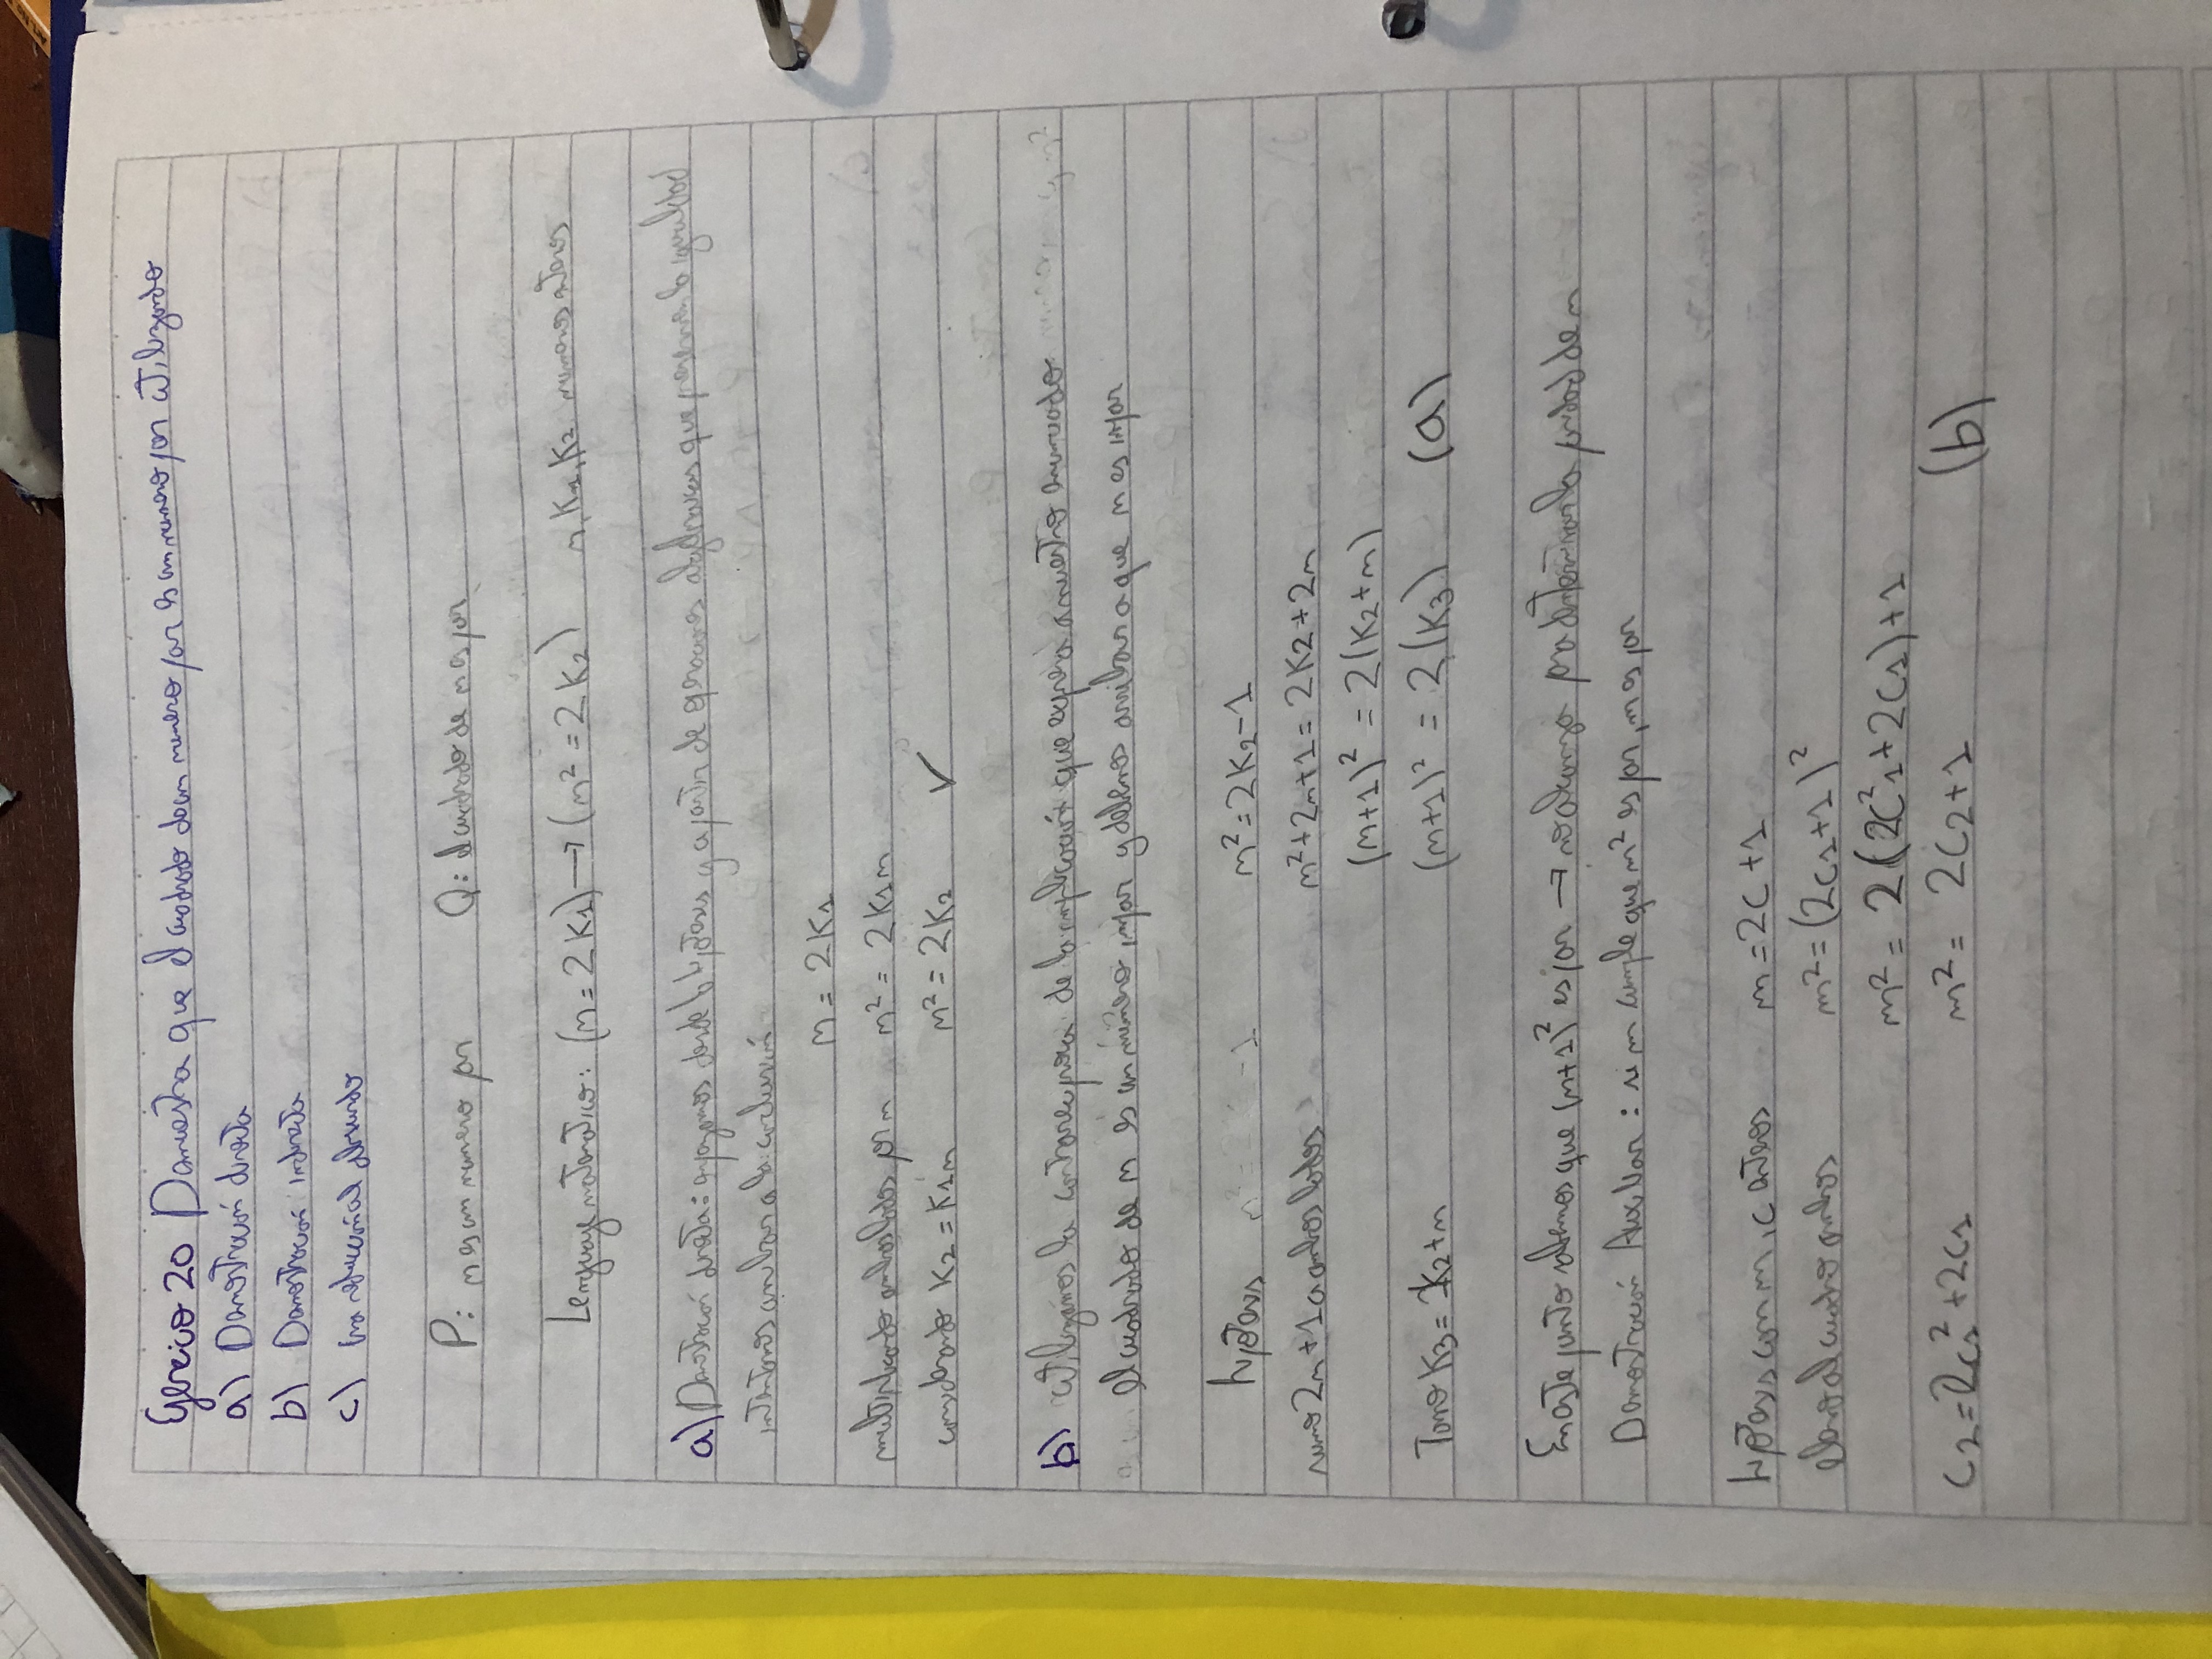 Ejercicio 20 Demuestra que el cuadrado de un numero par es un numero par utilizando
a) Demostración directa
b) Demostración indirecta
c) una reducción al absurdo
P: n es un numero par Q: el cuadrado de n es par
Lenguaje matematico: (n = 2K1) → (n² = 2K2) n, K1, K2 numeros enteros
a) Demostración directa: empezamos desde la hipótesis y a partir de operaciones algebraicas que preserven la igualdad
intentamos arribar a la conclusión
n = 2K1
multiplicando ambos lados por n n² = 2K1n
considerando K2 = K1n n² = 2K2 ✓
b) utilizamos la contrareciproca de la implicación que expresa nuestro enunciado
el cuadrado de n es un número impar y debemos arribar a que n es impar
hipótesis n² = 2K2 - 1
sumo 2n + 1 a ambos lados n² + 2n + 1 = 2K2 + 2n
(n+1)² = 2(K2 + n)
Tomo K3 = K2 + n (n+1)² = 2(K3) (a)
En este punto sabemos que (n+1)² es par → no alcanza para determinar la paridad de n
Demostración Auxiliar: si m cumple que m² es par, m es par
hipótesis con m, c enteros m = 2c + 1
elevo al cuadrado ambos m² = (2c1 + 1)²
m² = 2(2c1² + 2c1) + 1
c2 = 2c1² + 2c1 m² = 2c2 + 1 (b)